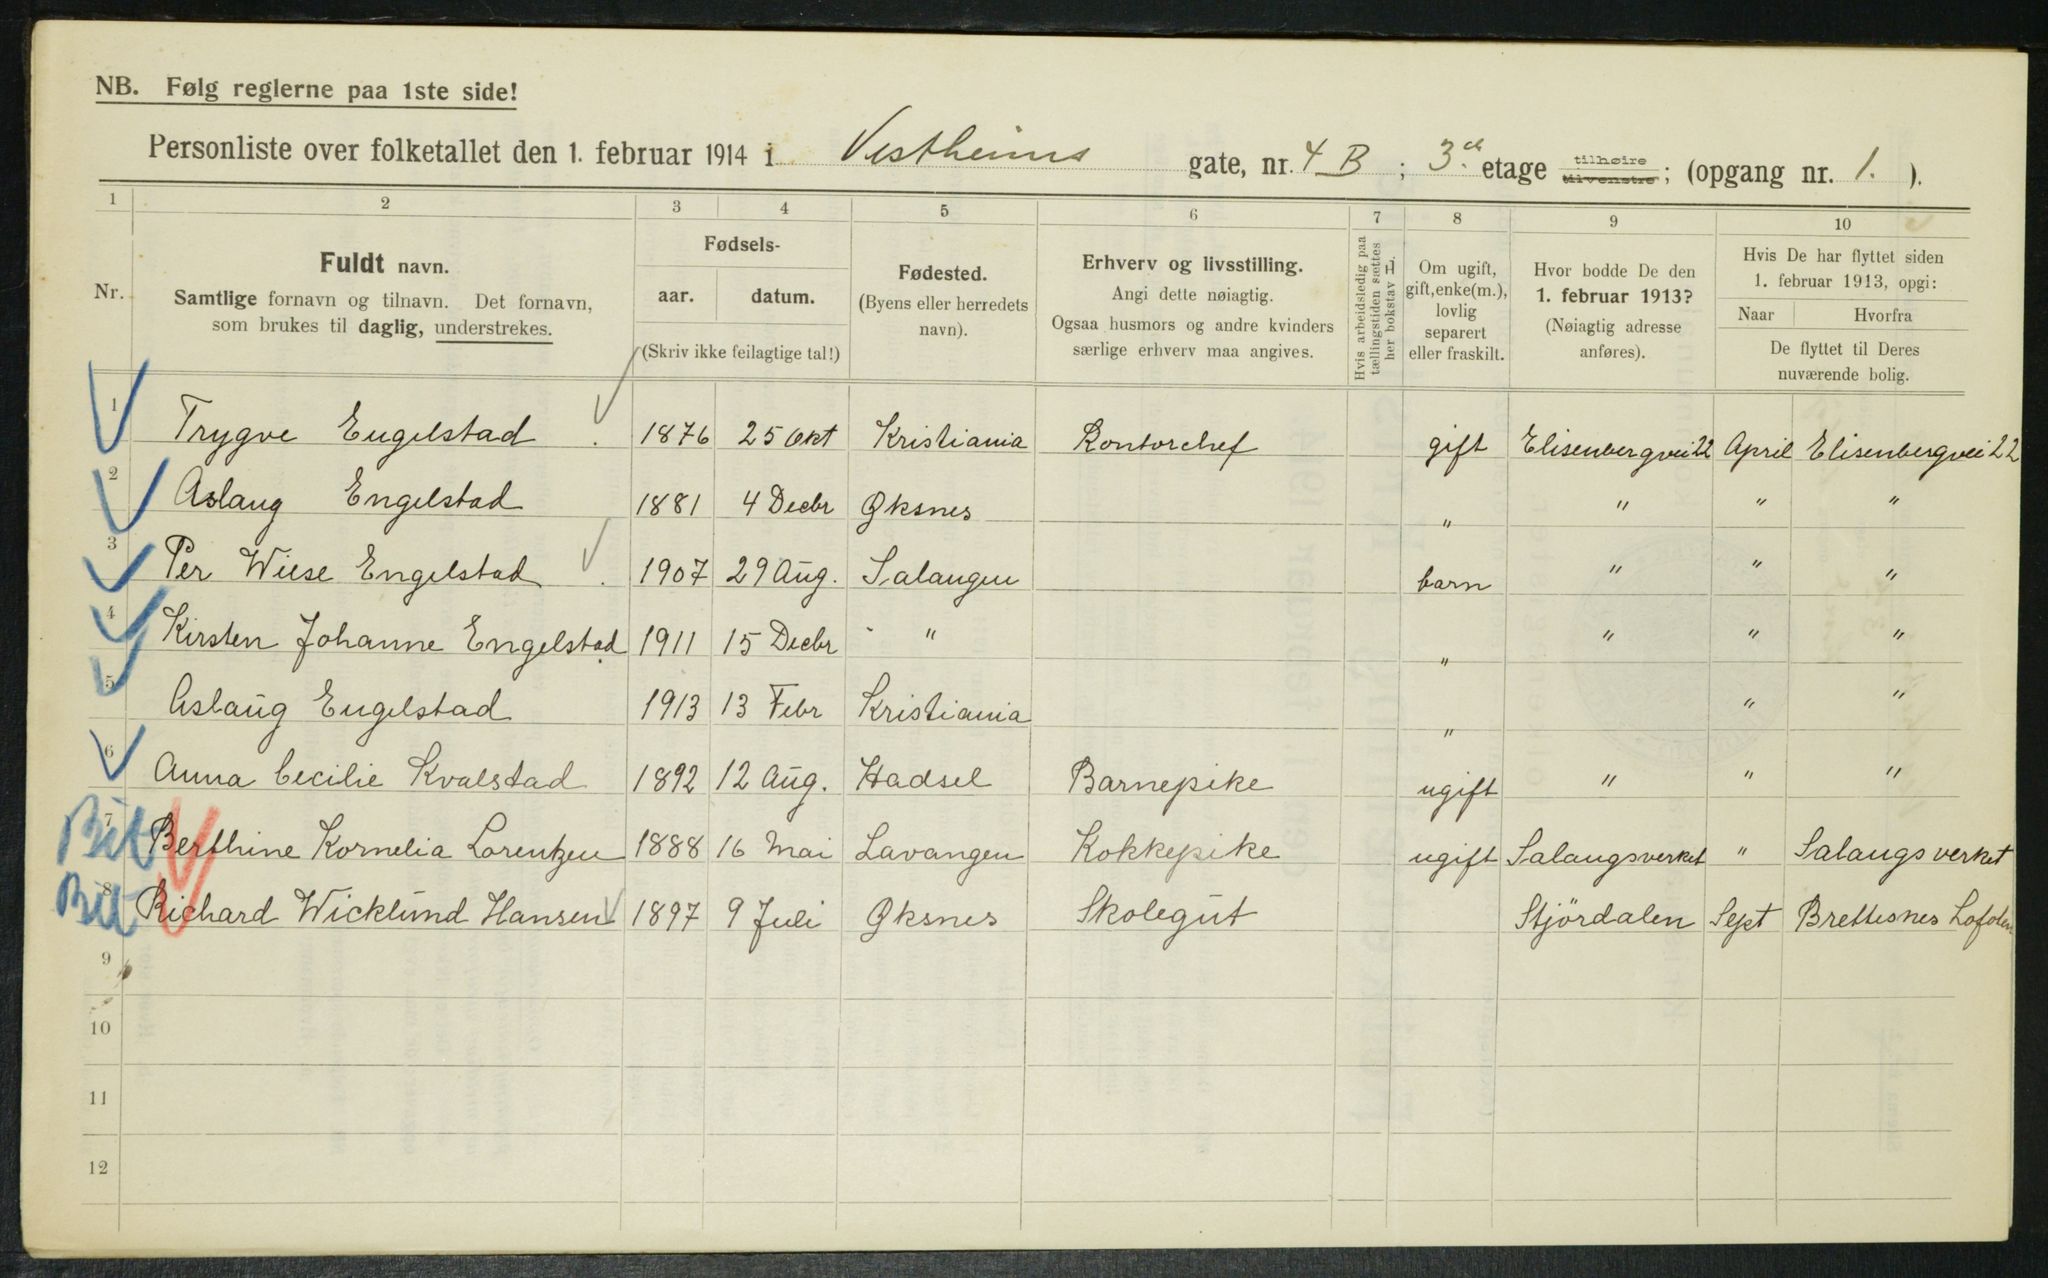 NB. Følg reglerne paa 1ste side!
Personliste over folketallet den 1. februar 1914 i Vestheims gate, nr. 4 B ; 3. etage tilhøire tilvenstre; (opgang nr. 1. ).
1 2 3 4 5 6 7 8 9 10
Nr.
Fuldt navn.
Samtlige fornavn og tilnavn. Det fornavn,
som brukes til daglig, understrekes.
Fødsels-
aar. datum.
(Skriv ikke feilagtige tal!)
Fødested.
(Byens eller herredets
navn).
Erhverv og livsstilling.
Angi dette nøiagtig.
Ogsaa husmors og andre kvinders
særlige erhverv maa angives.
Hvis arbeidsledig paa
tællingstiden sættes
her bokstav L.
Om ugift,
gift, enke(m.),
lovlig
separert
eller fraskilt.
Hvor bodde De den
1. februar 1913?
(Nøiagtig adresse
anføres).
Hvis De har flyttet siden
1. februar 1913, opgi:
Naar Hvorfra
De flyttet til Deres
nuværende bolig.
1 Trygve Engelstad 1876 25 Okt Kristiania Kontorchef gift Elisenbergvei 22 April Elisenbergvei 22
2 Aslaug Engelstad 1881 4 Decbr Øksnes " " " "
3 Per Wiese Engelstad 1907 29 Aug. Salangen barn " " "
4 Kirsten Johanne Engelstad 1911 15 Decbr " " " " " "
5 Aslaug Engelstad 1913 13 Febr Kristiania " " "
6 Anna Cecilie Kvalstad 1892 12 Aug. Hadsel Barnepike ugift " " "
7 Berthine Kornelia Lorentzen 1888 16 Mai Lavangen Kokkepike ugift Salangsverket " Salangsverket
8 Richard Wicklund Hansen 1897 9 Juli Øksnes Skolegut Stjördalen Sept Brettesnes Lofoten
9
10
11
12